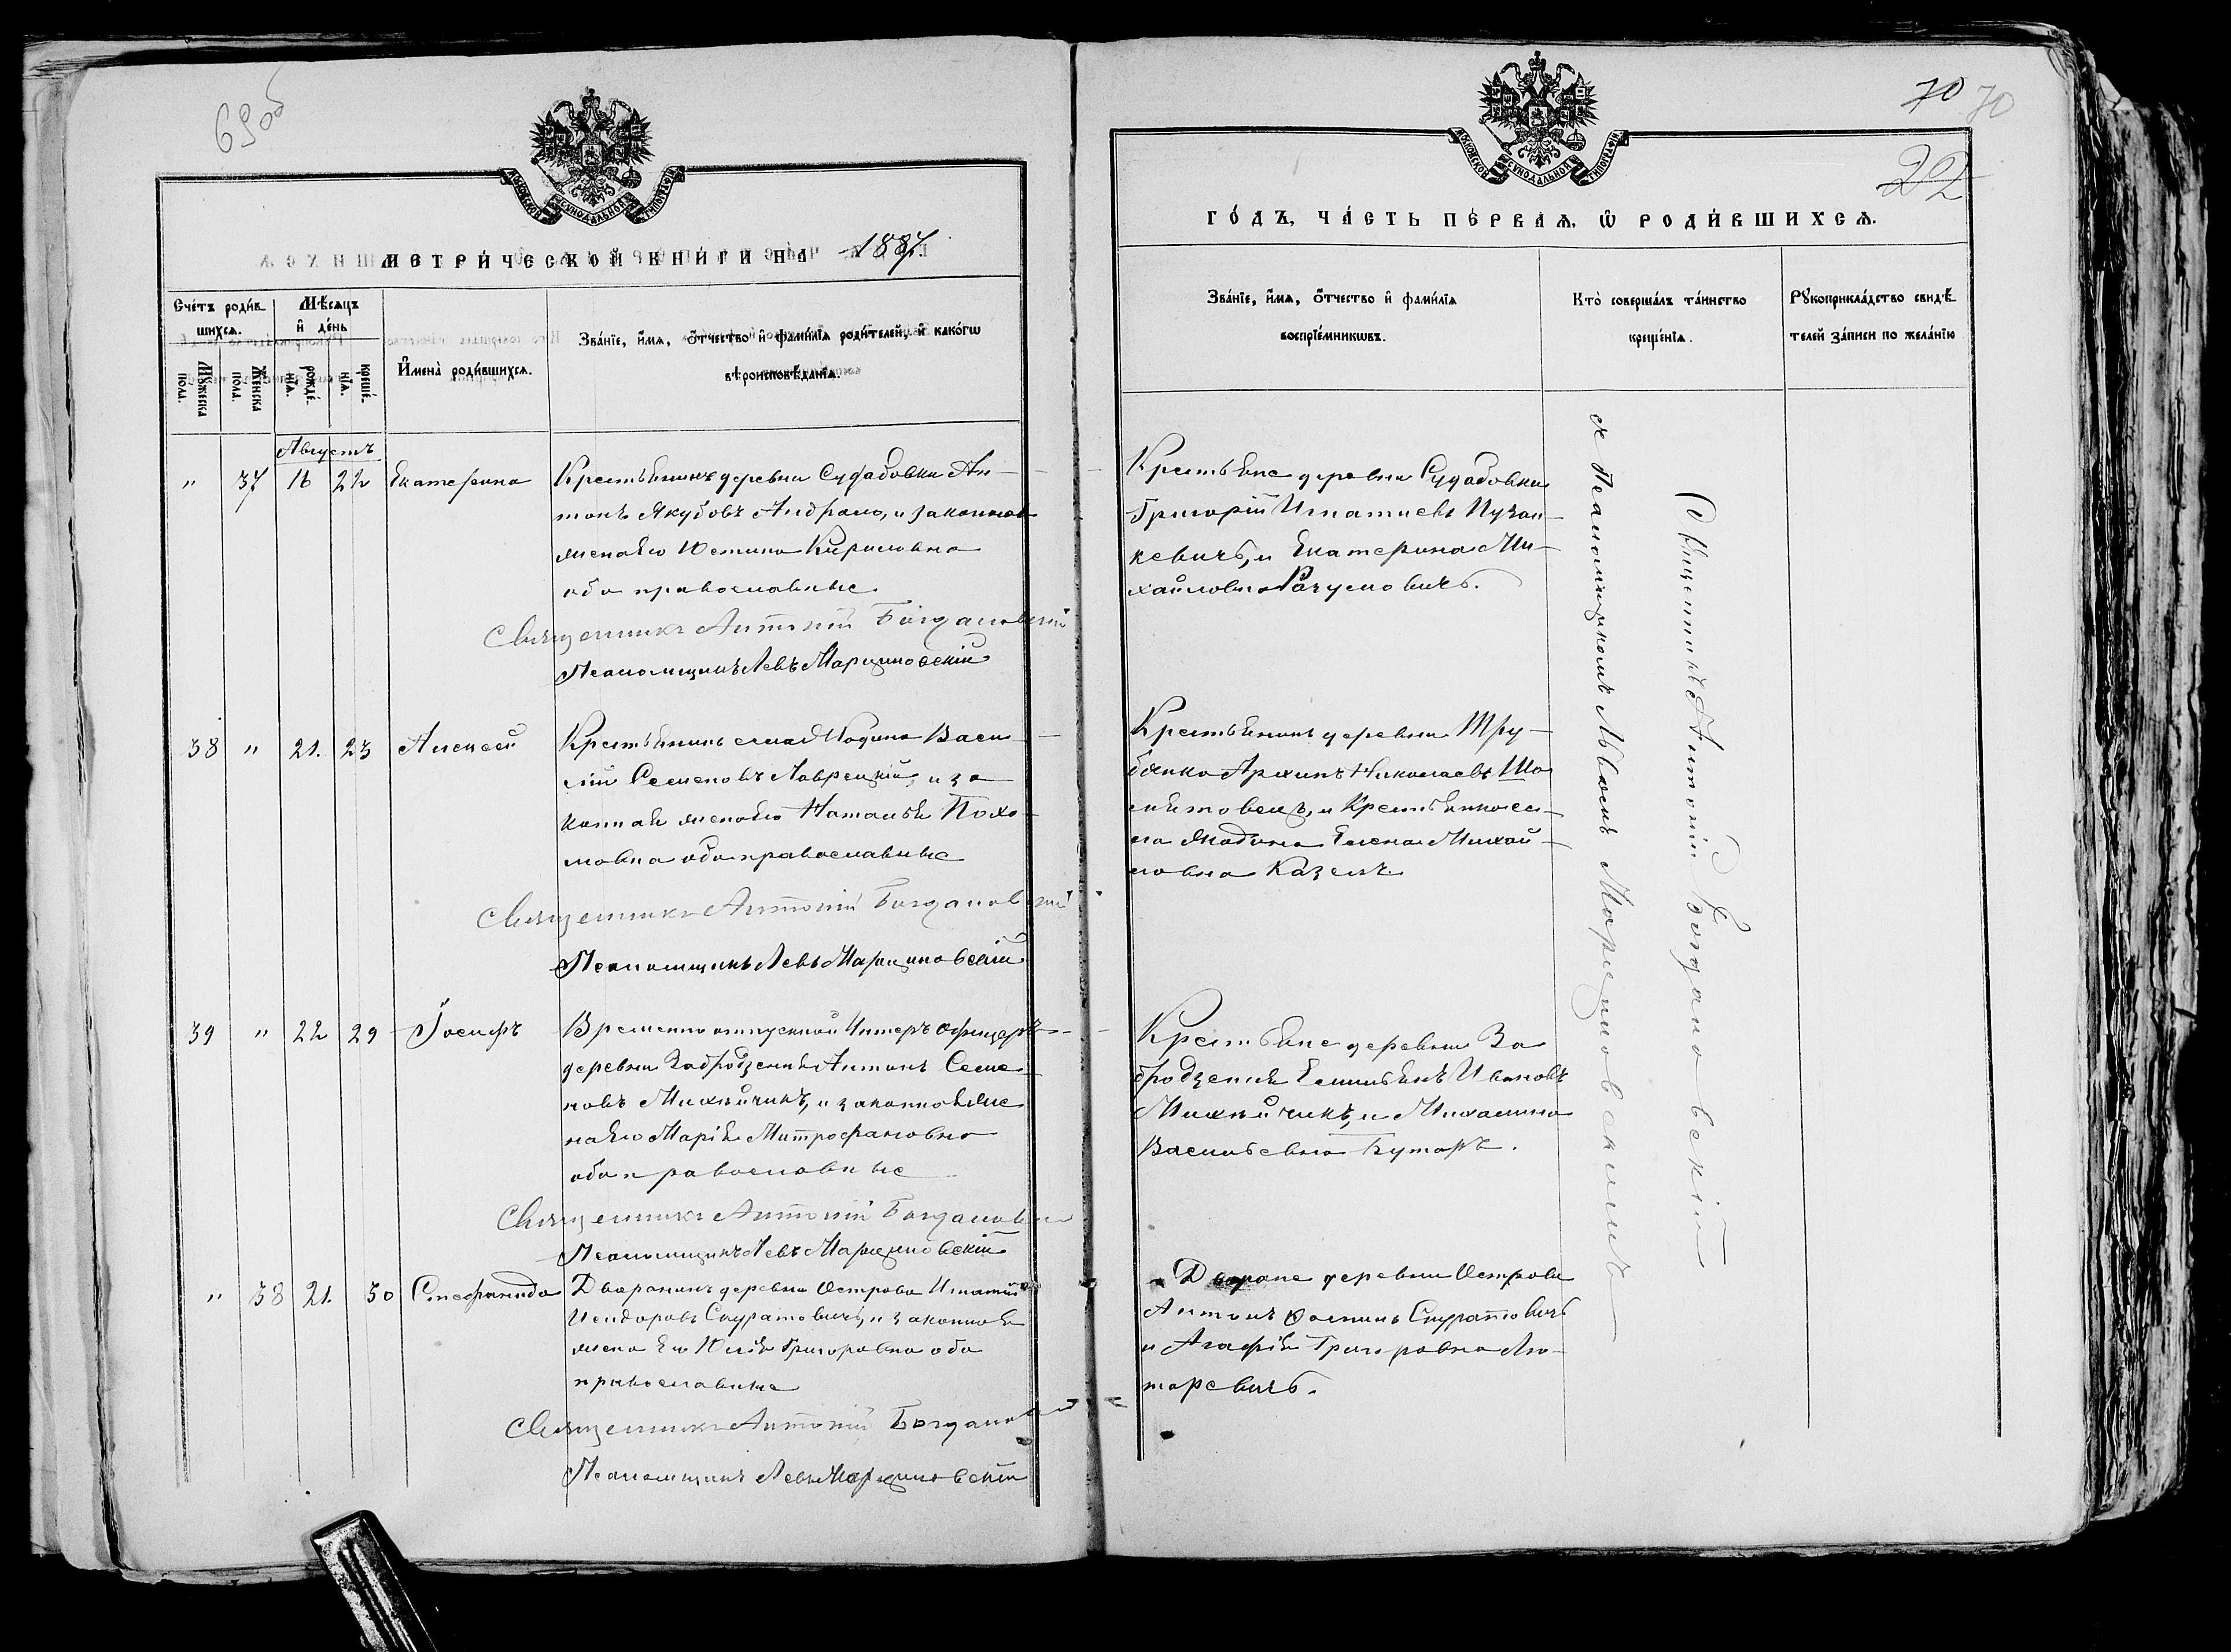 69об
МОСКОВСКОЙ СѴНОДАЛЬНОЙ ТИПОГРАФІИ
МЕТРИ́ЧЕСКОЙ КНИ́ГИ НА 1887
Сче́тъ роди́в
шихсѧ.
Мѣ́сѧцъ
и҆ де́нь
Мꙋ́жеска
пола.
Же́нска
пола.
рожде́-
нїѧ.
креще́-
нїѧ.
И҆мена̀ роди́вшихсѧ.
Зва́нїе, и҆́мѧ, ѻ҆́тчество и҆ фами́лїѧ роди́телей, и҆ како́гѡ
вѣроисповѣ́данїѧ.
Августъ
" 37 16 22 Екатерина
Крестьянинъ деревни Судабовки Ан-
тонъ Якубовъ Андрало, и законная
жена его Юстина Кириловна
оба православные
Священникъ Антоній Богдановскій
Псаломщикъ Левъ Марциновскій
38 " 21. 23 Алексей
Крестьянинъ села Ятодина Васи-
лій Семеновъ Лаврецкій, и за-
конная жена его Наталья Пахо-
мовна оба православные
Священникъ Антоній Богдановскій
Псаломщикъ Левъ Марциновскій
39 " 22 29 Іосифъ
Временно отпускной Унтеръ офицеръ
деревни Забродзенья Антонъ Семе-
новъ Михнійчикъ, и законная же-
на его Марія Митрофановна
оба православные
Священникъ Антоній Богдановскій
Псаломщикъ Левъ Марциновскій
" 38 21. 30 Стефанида
Дворянинъ деревни Острова Игнатій
Исидоровъ Скуратовичъ, и законная
жена его Юлія Григоровна оба
православные
Священникъ Антоній Богдановскій
Псаломщикъ Левъ Марциновскій
70 70
22
МОСКОВСКОЙ СѴНОДАЛЬНОЙ ТИПОГРАФІИ
ГО́ДЪ, ЧА́СТЬ ПЕ́РВАѦ, Ѡ҆ РОДИ́ВШИХСѦ.
Зва́нїе, и҆́мѧ, ѻ҆́тчество и҆ фами́лїѧ
воспрїе́мникѡвъ.
Кто̀ соверша́лъ та́инство
креще́нїѧ.
Рꙋкоприкла́дство свидѣ́-
телей за́писи по жела́нїю
Крестьяне деревни Судабовки
Григорій Игнатіевъ Пузан-
кевичъ, и Екатерина Ми-
хайловна Рачуловичъ.
Крестьянинъ деревни Тру-
Архипъ Николаевъ
и Крестьянка се-
ла Елена Михай-
ловна Казелъ
Крестьяне деревни За-
бродзенья Емильянъ Ивановъ
Михнійчикъ, и Михалина
Васильевна Бутаръ.
Дворяне деревни Острова
Антонъ Скуратовичъ
и Агафія Григоровна Лю-
таревичъ.
Священникъ Антоній Богдановскій
съ Псаломщикомъ Львомъ Марциновскимъ